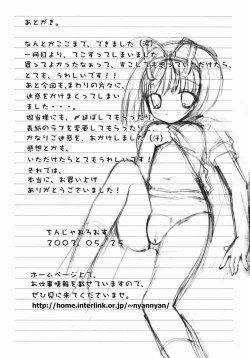 あとがき。
なんとかここまで、できました(汗)
一冊目より、てこずってしまいました(汗)
買ってよかったなぁって、すこしでも思っていただけたら、
とても、うれしいです!!
あと今回も、まわりの方々に、
迷惑をかけまくってしまい
ました・・・。
担当様にも、〆はばしてもらったり、
表紙のラフを変更してもらったりと、
かなりご迷惑を、おかけしました(汗)
感想とかも、
いただけたらとてもうれしいです!
では、
本当に、お買い上げ
ありがとうございました!
ちんじゃおろおす
2007. 05. 25
ホームページ上で、
お仕事情報を載せていますので、
ぜひ見に来てくださいませ。
http://home.interlink.or.jp/~nyannyan/